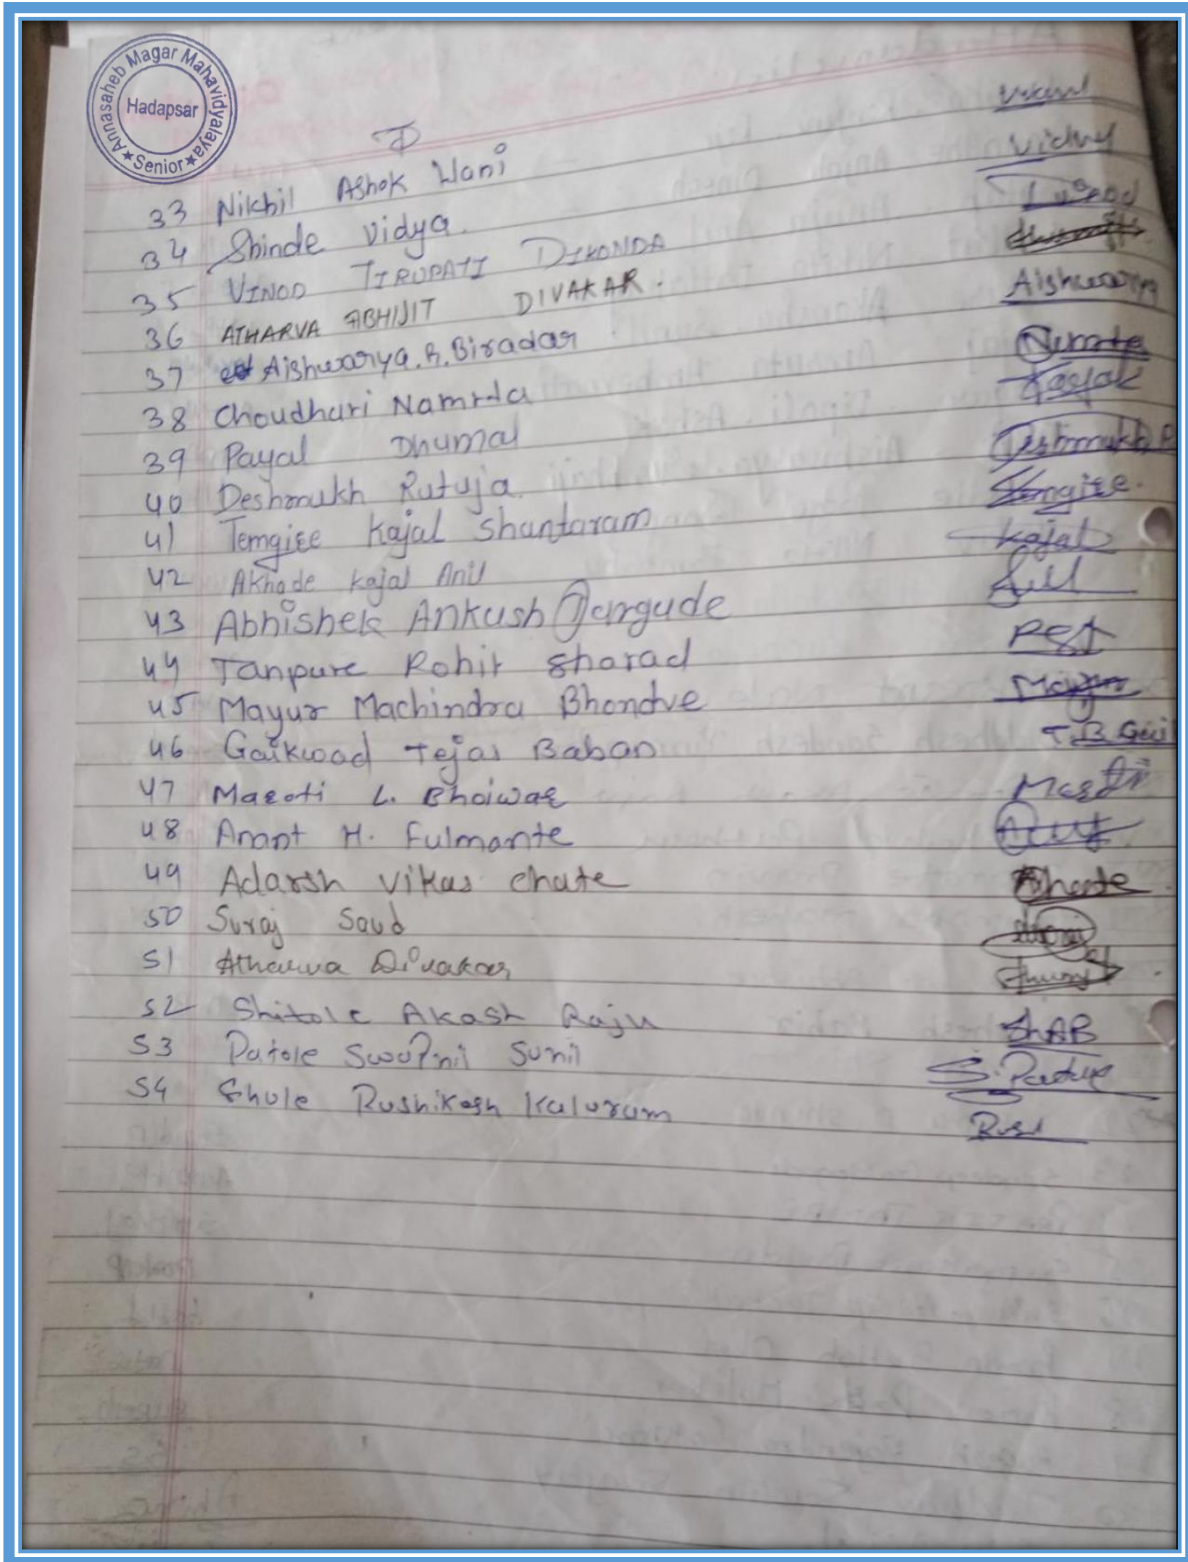 Annasaheb Magar Mahavidyalaya
Hadapsar
★ Senior ★
33 Nikhil Ashok Wani
34 Shinde Vidya. Vidhy
35 VINOD TIRUPATI DIKONDA
36 ATHARVA ABHIJIT DIVAKAR.
37 Aishwarya.R.Biradar Aishwarya
38 Choudhari Namrta
39 Payal Dhumal
40 Deshmukh Rutuja. Deshmukh R
41 Temgire Kajal Shantaram Temgire.
42 Akhade Kajal Anil Kajal
43 Abhishek Ankush Jangude
44 Tanpure Rohit Sharad
45 Mayur Machindra Bhondve Mayur
46 Gaikwad Tejas Baban T.B.Gai
47 Maroti L. Bhoiwar
48 Anant H. Fulmante
49 Adarsh Vikas Chate
50 Suraj Saud
51 Atharva Divakar
52 Shitole Akash Raju ShAB
53 Patole Swapnil Sunil
54 Ghule Rushikesh Kaluram